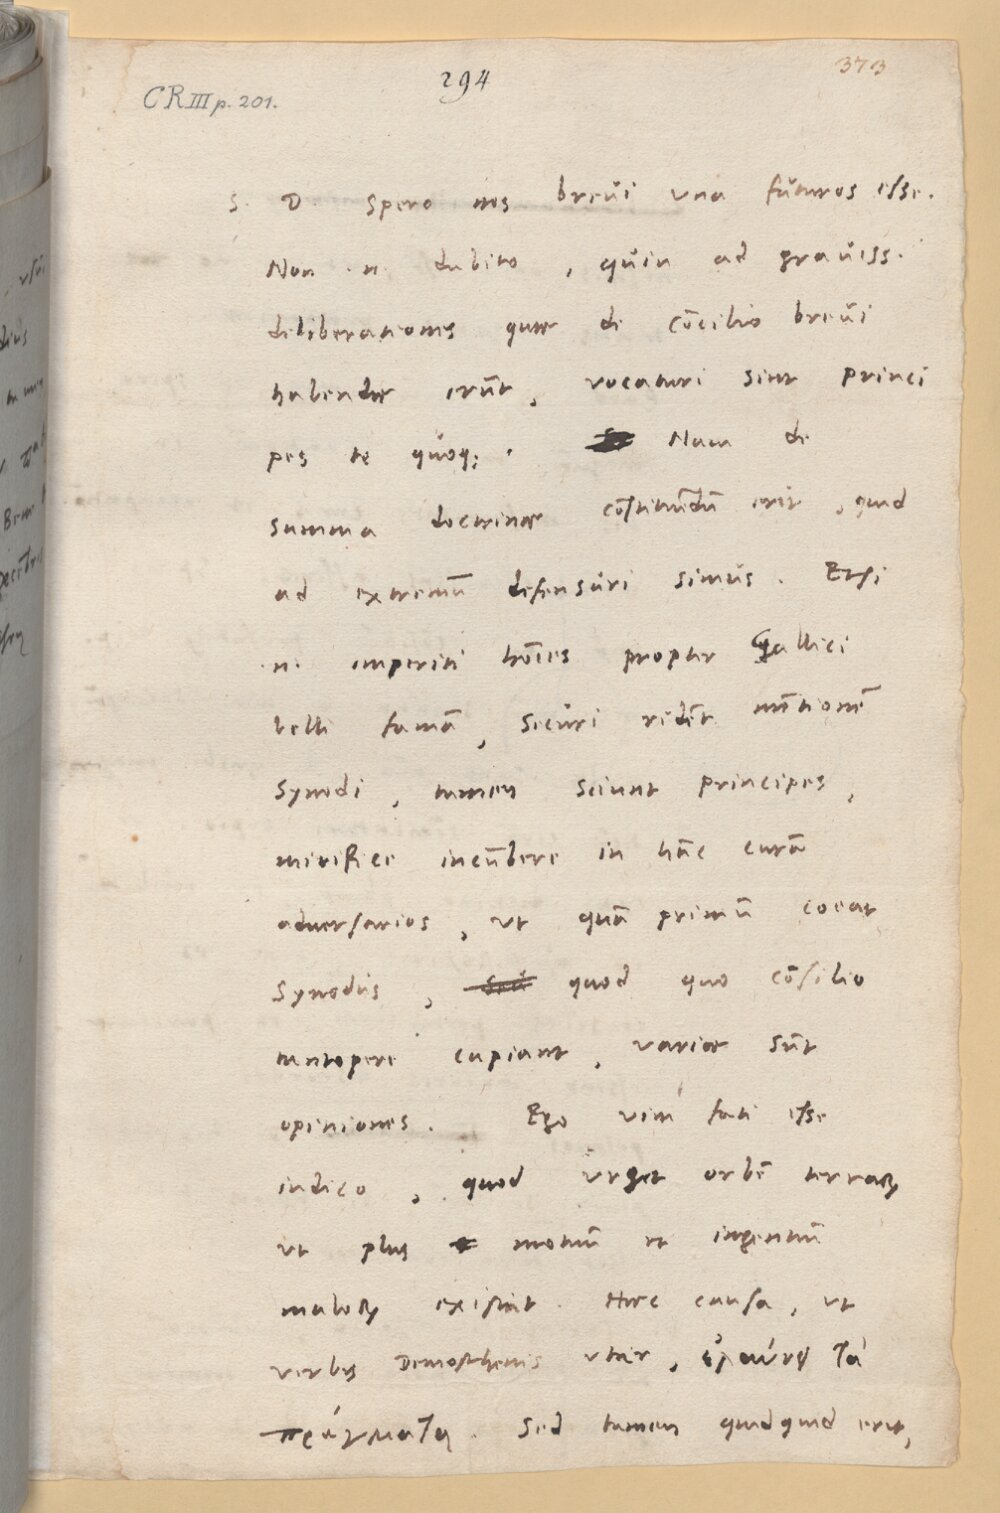 CR III p. 201.
294
373
S. D. Spero nos breui vna futuros esse.
Non .n. dubito, quin ad grauiss.
deliberationes quae de cōcilio breui
habendae erūt, vocaturi sint princi
pes te quoq;. Nam de
summa doctrinae cōstituēdū erit, quid
ad extremū defensuri simus. Etsi
.n. imperiti hōīes propter Gallici
belli famā, securi ridēt mētionē
Synodi, tamen sciunt principes,
mirifice incūbere in hāc curā
aduersarios, vt quā primū coeat
Synodus, Sed quod quo cōsilio
tantopere cupiant, variae sūt
opiniones. Ego vim fati esse
iudico, quod vrget orbē terraꝝ
vt plus motuū et ingentiū
maloꝝ existat. Haec causa, vt
verbis Demosthenis vtar, τὰ
πράγματα. Sed tamen quidquid erit,